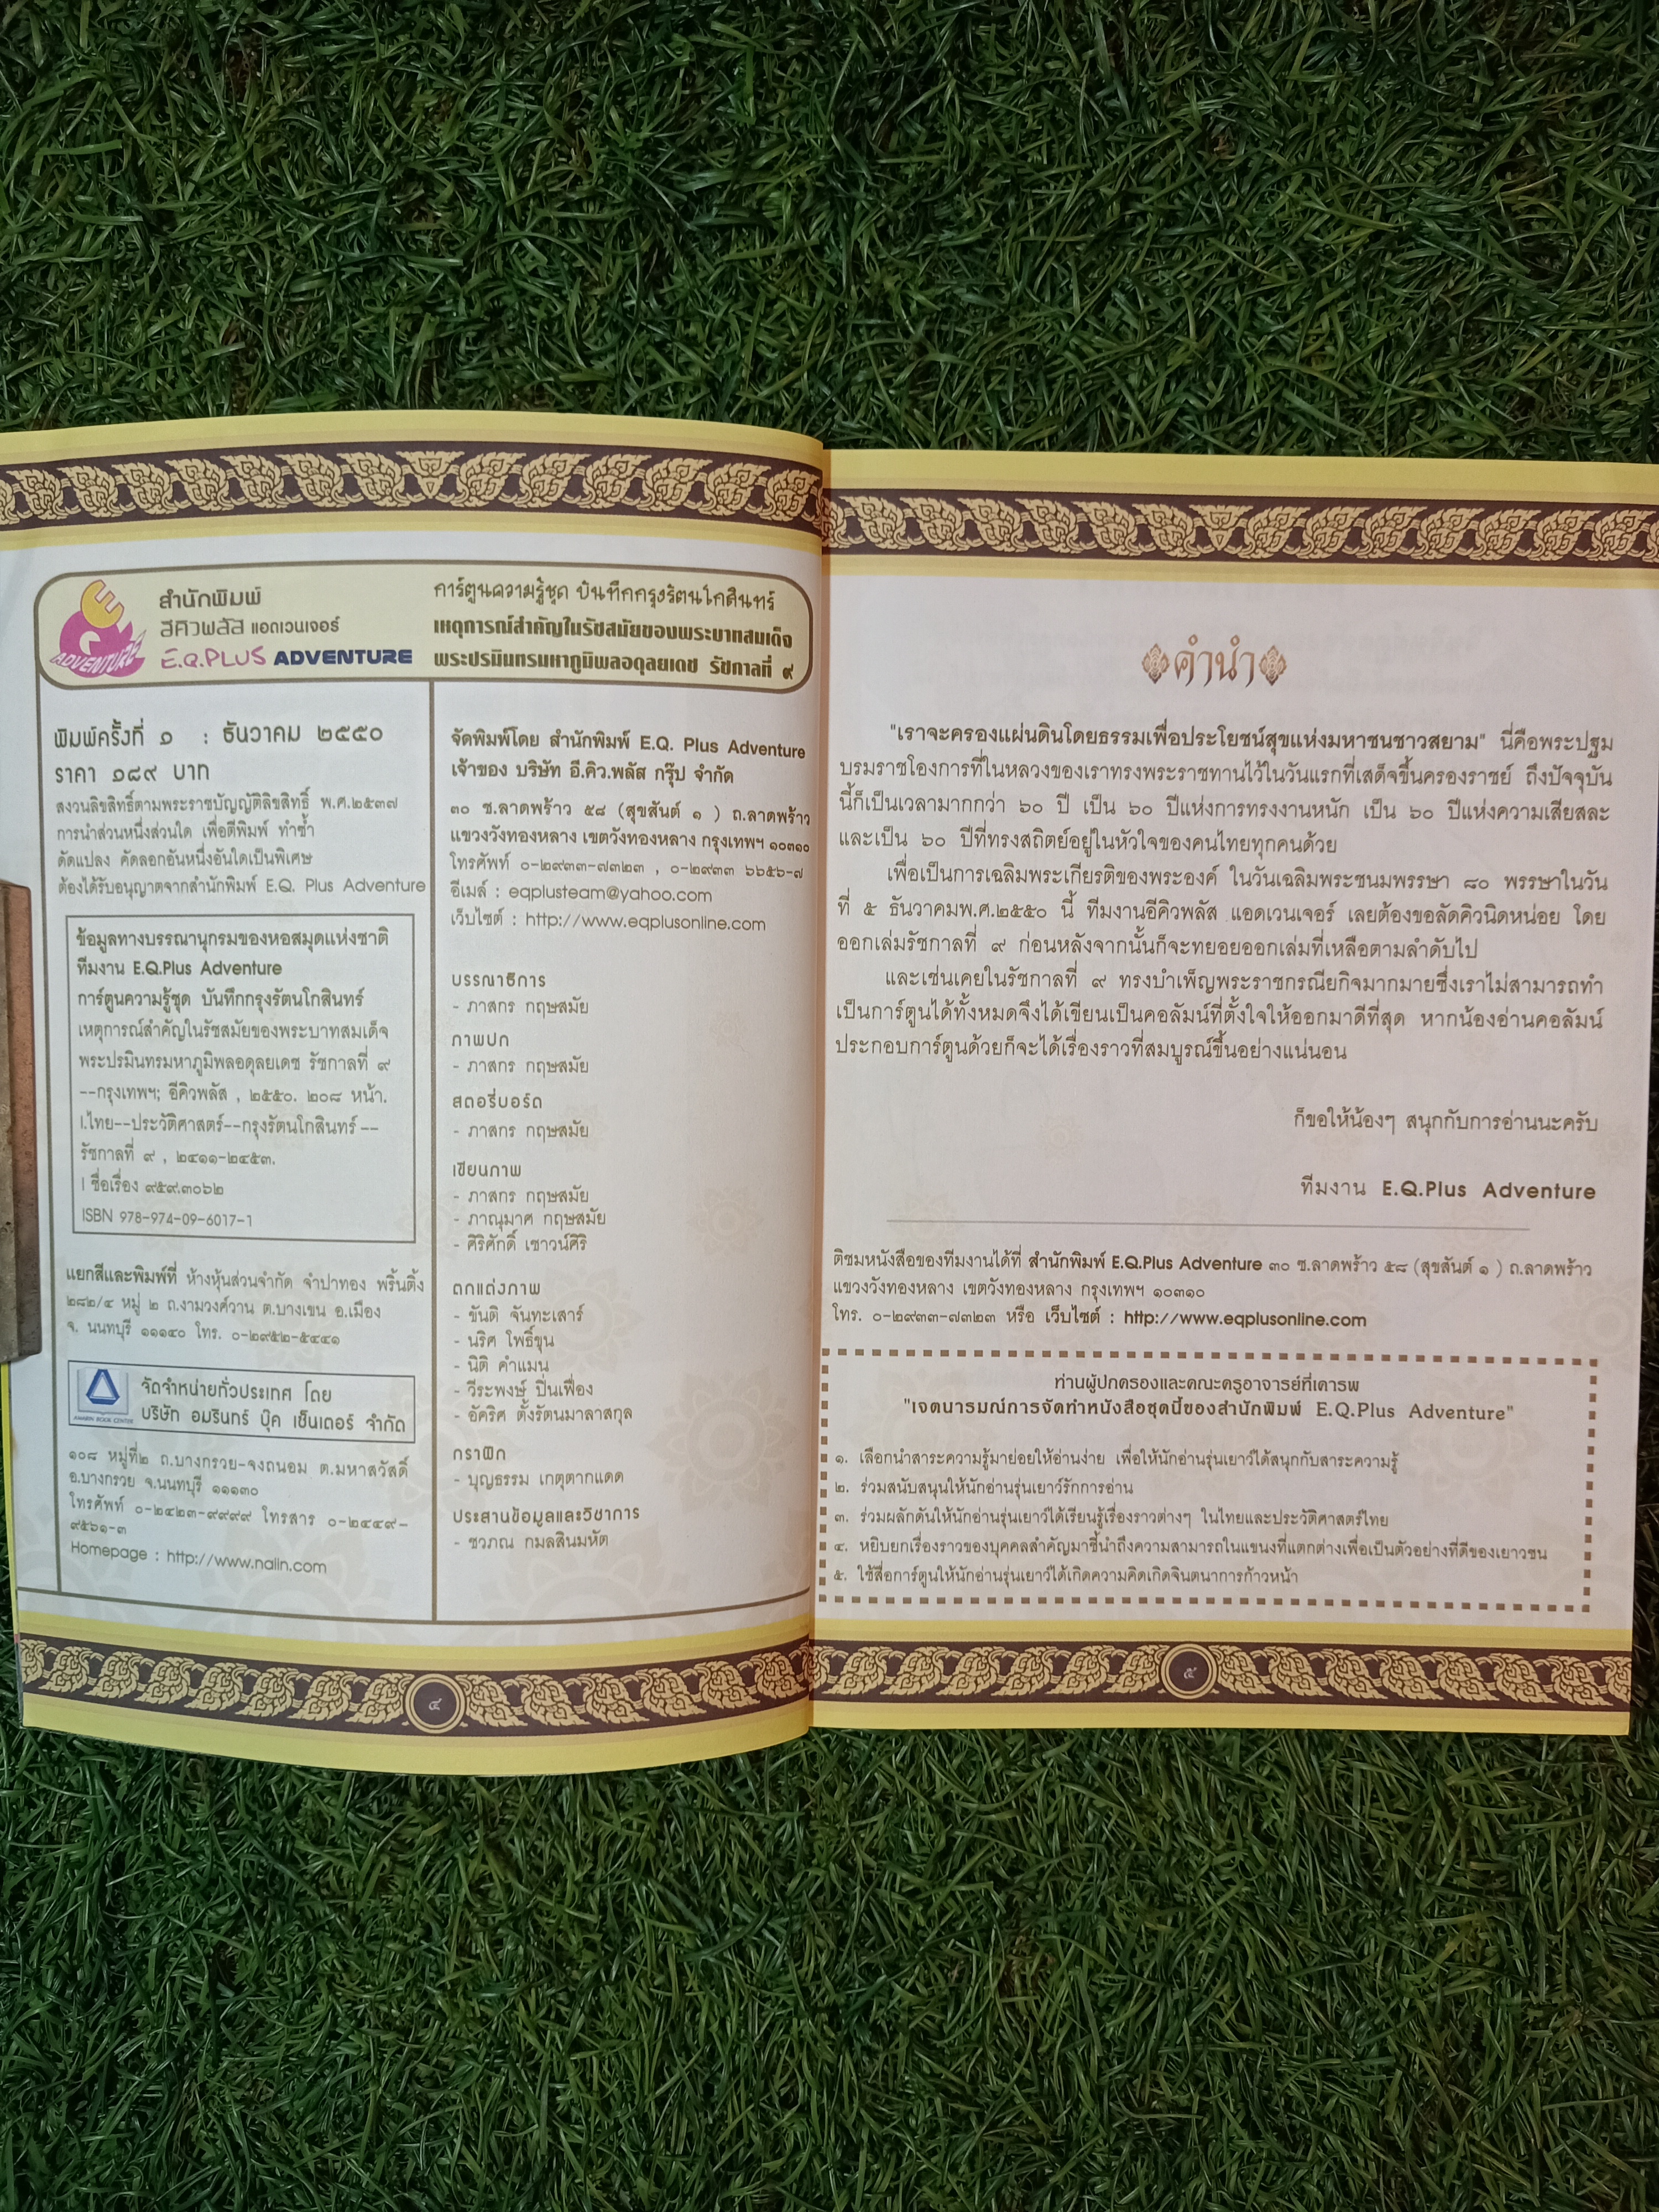 สำนักพิมพ์
อีคิวพลัส แอดเวนเจอร์
E.Q.PLUS ADVENTURE
ADVENTURE
การ์ตูนความรู้ชุด บันทึกกรุงรัตนโกสินทร์
เหตุการณ์สำคัญในรัชสมัยของพระบาทสมเด็จ
พระปรมินทรมหาภูมิพลอดุลยเดช รัชกาลที่ ๙
พิมพ์ครั้งที่ ๑ : ธันวาคม ๒๕๕๐
ราคา ๑๘๙ บาท
สงวนลิขสิทธิ์ตามพระราชบัญญัติลิขสิทธิ์ พ.ศ.๒๕๓๗
การนำส่วนหนึ่งส่วนใด เพื่อตีพิมพ์ ทำซ้ำ
ดัดแปลง คัดลอกอันหนึ่งอันใดเป็นพิเศษ
ต้องได้รับอนุญาตจากสำนักพิมพ์ E.Q. Plus Adventure
ข้อมูลทางบรรณานุกรมของหอสมุดแห่งชาติ
ทีมงาน E.Q.Plus Adventure
การ์ตูนความรู้ชุด บันทึกกรุงรัตนโกสินทร์
เหตุการณ์สำคัญในรัชสมัยของพระบาทสมเด็จ
พระปรมินทรมหาภูมิพลอดุลยเดช รัชกาลที่ ๙
--กรุงเทพฯ; อีคิวพลัส , ๒๕๕๐. ๒๐๘ หน้า.
I.ไทย--ประวัติศาสตร์--กรุงรัตนโกสินทร์ --
รัชกาลที่ ๙ , ๒๔๑๑-๒๔๕๓.
I ชื่อเรื่อง ๙๕๙.๓๐๖๒
ISBN 978-974-09-6017-1
แยกสีและพิมพ์ที่ ห้างหุ้นส่วนจำกัด จำปาทอง พริ้นติ้ง
๒๘๒/๔ หมู่ ๒ ถ.งามวงศ์วาน ต.บางเขน อ.เมือง
จ. นนทบุรี ๑๑๑๔๐ โทร. ๐-๒๙๕๒-๕๔๔๑
AMARIN BOOK CENTER
จัดจำหน่ายทั่วประเทศ โดย
บริษัท อมรินทร์ บุ๊ค เซ็นเตอร์ จำกัด
๑๐๘ หมู่ที่๒ ถ.บางกรวย-จงถนอม ต.มหาสวัสดิ์
อ.บางกรวย จ.นนทบุรี ๑๑๑๓๐
โทรศัพท์ ๐-๒๔๒๓-๙๙๙๙ โทรสาร ๐-๒๔๔๙-
๙๕๖๑-๓
Homepage : http://www.naiin.com
จัดพิมพ์โดย สำนักพิมพ์ E.Q. Plus Adventure
เจ้าของ บริษัท อี.คิว.พลัส กรุ๊ป จำกัด
๓๐ ซ.ลาดพร้าว ๕๘ (สุขสันต์ ๑ ) ถ.ลาดพร้าว
แขวงวังทองหลาง เขตวังทองหลาง กรุงเทพฯ ๑๐๓๑๐
โทรศัพท์ ๐-๒๙๓๓-๗๓๒๓ , ๐-๒๙๓๓ ๖๖๕๖-๗
อีเมล์ : eqplusteam@yahoo.com
เว็บไซต์ : http://www.eqplusonline.com
บรรณาธิการ
- ภาสกร กฤษสมัย
ภาพปก
- ภาสกร กฤษสมัย
สตอรี่บอร์ด
- ภาสกร กฤษสมัย
เขียนภาพ
- ภาสกร กฤษสมัย
- ภาณุมาศ กฤษสมัย
- ศิริศักดิ์ เชาวน์ศิริ
ตกแต่งภาพ
- ขันติ จันทะเสาร์
- นริศ โพธิ์ขุน
- นิติ คำแมน
- วีระพงษ์ ปิ่นเฟื่อง
- อัคริศ ตั้งรัตนมาลาสกุล
กราฟิก
- บุญธรรม เกตุตากแดด
ประสานข้อมูลและวิชาการ
- ชวภณ กมลสินมหัต
๔
คำนำ
"เราจะครองแผ่นดินโดยธรรมเพื่อประโยชน์สุขแห่งมหาชนชาวสยาม" นี่คือพระปฐม
บรมราชโองการที่ในหลวงของเราทรงพระราชทานไว้ในวันแรกที่เสด็จขึ้นครองราชย์ ถึงปัจจุบัน
นี้ก็เป็นเวลามากกว่า ๖๐ ปี เป็น ๖๐ ปีแห่งการทรงงานหนัก เป็น ๖๐ ปีแห่งความเสียสละ
และเป็น ๖๐ ปีที่ทรงสถิตย์อยู่ในหัวใจของคนไทยทุกคนด้วย
เพื่อเป็นการเฉลิมพระเกียรติของพระองค์ ในวันเฉลิมพระชนมพรรษา ๘๐ พรรษาในวัน
ที่ ๕ ธันวาคมพ.ศ.๒๕๕๐ นี้ ทีมงานอีคิวพลัส แอดเวนเจอร์ เลยต้องขอลัดคิวนิดหน่อย โดย
ออกเล่มรัชกาลที่ ๙ ก่อนหลังจากนั้นก็จะทยอยออกเล่มที่เหลือตามลำดับไป
และเช่นเคยในรัชกาลที่ ๙ ทรงบำเพ็ญพระราชกรณียกิจมากมายซึ่งเราไม่สามารถทำ
เป็นการ์ตูนได้ทั้งหมดจึงได้เขียนเป็นคอลัมน์ที่ตั้งใจให้ออกมาดีที่สุด หากน้องอ่านคอลัมน์
ประกอบการ์ตูนด้วยก็จะได้เรื่องราวที่สมบูรณ์ขึ้นอย่างแน่นอน
ก็ขอให้น้องๆ สนุกกับการอ่านนะครับ
ทีมงาน E.Q.Plus Adventure
ติชมหนังสือของทีมงานได้ที่ สำนักพิมพ์ E.Q.Plus Adventure ๓๐ ซ.ลาดพร้าว ๕๘ (สุขสันต์ ๑ ) ถ.ลาดพร้าว
แขวงวังทองหลาง เขตวังทองหลาง กรุงเทพฯ ๑๐๓๑๐
โทร. ๐-๒๙๓๓-๗๓๒๓ หรือ เว็บไซต์ : http://www.eqplusonline.com
ท่านผู้ปกครองและคณะครูอาจารย์ที่เคารพ
"เจตนารมณ์การจัดทำหนังสือชุดนี้ของสำนักพิมพ์ E.Q.Plus Adventure"
๑. เลือกนำสาระความรู้มาย่อยให้อ่านง่าย เพื่อให้นักอ่านรุ่นเยาว์ได้สนุกกับสาระความรู้
๒. ร่วมสนับสนุนให้นักอ่านรุ่นเยาว์รักการอ่าน
๓. ร่วมผลักดันให้นักอ่านรุ่นเยาว์ได้เรียนรู้เรื่องราวต่างๆ ในไทยและประวัติศาสตร์ไทย
๔. หยิบยกเรื่องราวของบุคคลสำคัญมาชี้นำถึงความสามารถในแขนงที่แตกต่างเพื่อเป็นตัวอย่างที่ดีของเยาวชน
๕. ใช้สื่อการ์ตูนให้นักอ่านรุ่นเยาว์ได้เกิดความคิดเกิดจินตนาการก้าวหน้า
๕